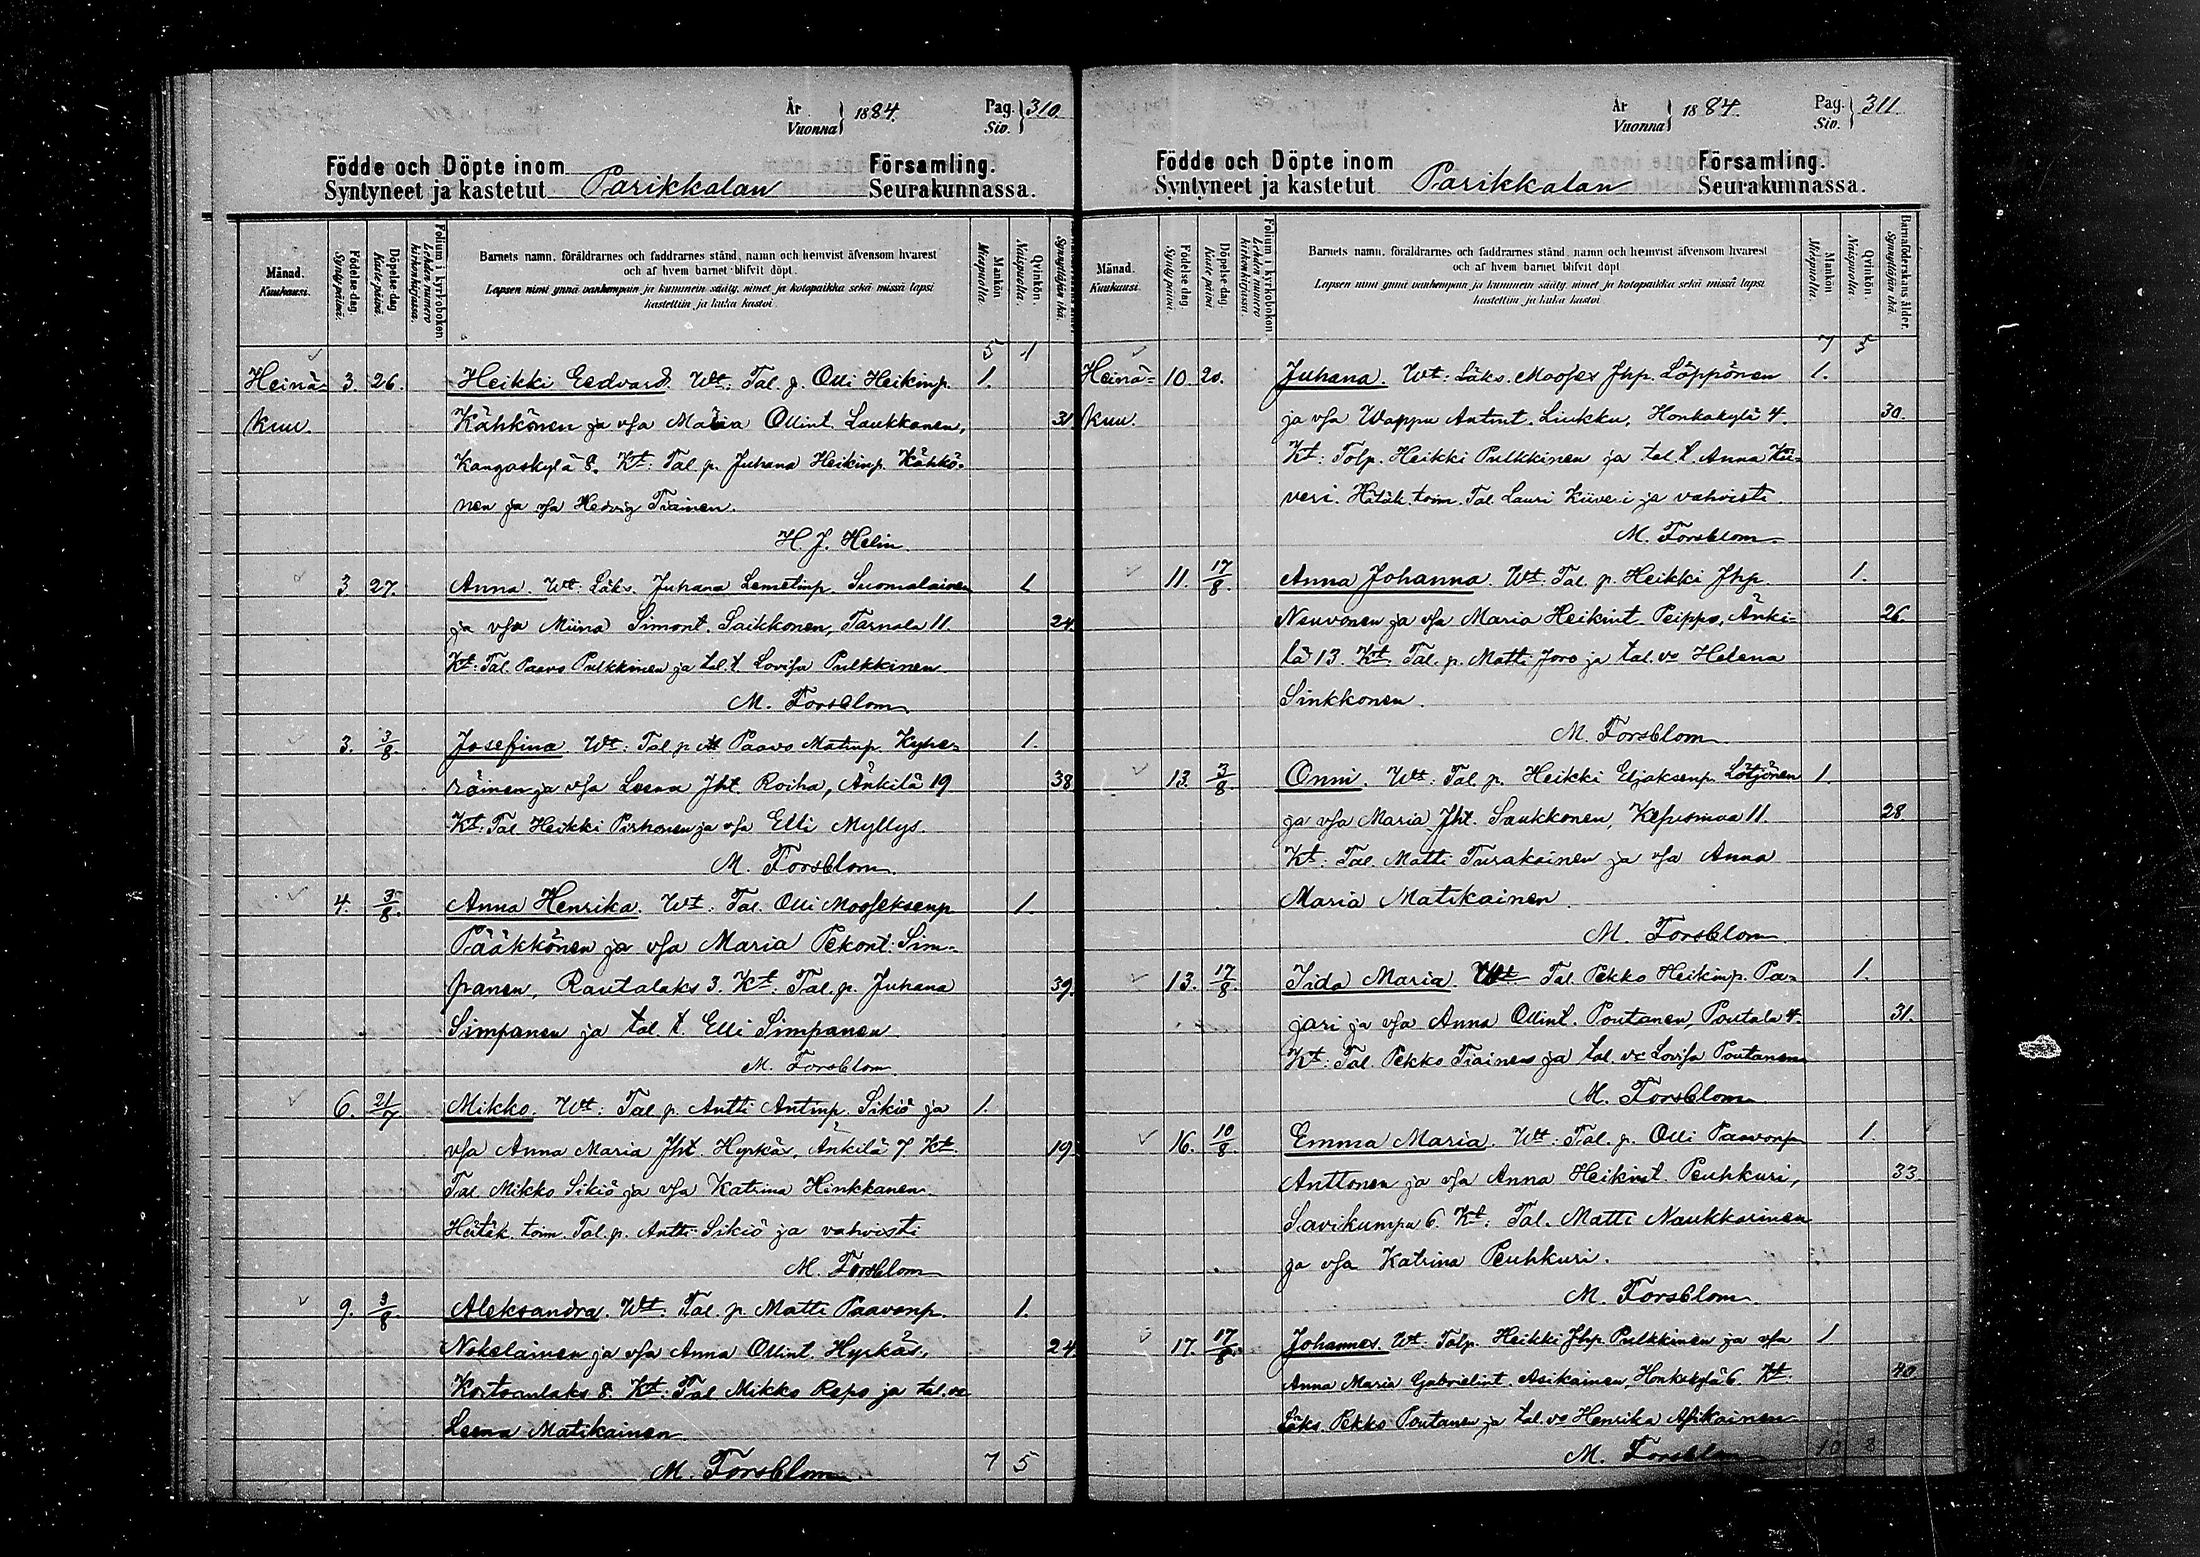 År
Vuonna } 1884. Pag. Siv. } 310.
Födde och Döpte inom Församling.
Syntyneet ja kastetut Parikkalan Seurakunnassa.
Månad. Kuukausi. Födelse dag. Synty päivä. Döpelse dag. Kaste päivä. Folium i kyrkoboken Lehden numero kirkonkirjassa.
Barnets namn, föräldrarnes och faddrarnes stånd, namn och hemvist äfvensom hvarest
och af hvem barnet blifvit döpt.
Lapsen nimi ynnä vanhempain ja kummein sääty, nimet ja kotopaikka sekä missä lapsi
kastettiin ja kuka kastoi.
Mankön Miespuolta. Qvinkön. Naispuolta. Synnyttäjän ikä.
5 1
Heinä- 3. 26. Heikki Eedvard. Wt: Tal. p. Olli Heikinp. 1.
kuu. Kähkönen ja vsa Maria Ollint. Laukkanen, 31
Kangaskylä 8. Kt: Tal p. Juhana Heikinp. Kähkö-
nen ja vsa Hedvig Tiainen.
H. J. Helin.
3. 27. Anna. Wt: Läks. Juhana Lemetinp. Suomalainen 1
ja vsa Miina Simont. Saikkonen, Tarnala 11. 24.
Kt: Tal. Paavo Pulkkinen ja tal. t. Lovisa Pulkkinen.
M. Forsblom.
3. 3/8. Josefina. Wt: Tal p Paavo Matinp. Kyhe- 1.
räinen ja vsa Leena Jht. Roiha, Änkilä 19 38
Kt: Tal. Heikki Pirhonen ja vsa Elli Myllys.
M. Forsblom.
4. 3/8. Anna Henrika. Wt: Tal. Olli Mooseksenp 1.
Pääkkönen ja vsa Maria Pekont. Sim-
panen, Rautalaks 3. Kt: Tal. p. Juhana 39.
Simpanen ja tal. t. Elli Simpanen
M. Forsblom.
6. 21/7 Mikko. Wt: Tal. p. Antti Antinp. Sikiö ja 1.
vsa Anna Maria Jht. Hyrkäs, Änkilä 7. Kt. 19.
Tal. Mikko Sikiö ja vsa Katrina Hinkkanen.
Hätäk. toim. Tal. p. Antti Sikiö ja vahvisti
M. Forsblom
9. 3/8 Aleksandra. Wt: Tal. p. Matti Paavonp. 1.
Nokelainen ja vsa Anna Ollint. Hyrkäs, 24
8. Kt: Tal Mikko Repo ja tal. vo
Leena Matikainen
M. Forsblom. 7 5
År
Vuonna } 1884. Pag. Siv. } 311.
Födde och Döpte inom Församling.
Syntyneet ja kastetut Parikkalan Seurakunnassa.
Månad. Kuukausi. Födelse dag. Synty päivä. Döpelse dag. Kaste päivä. Folium i kyrkoboken Lehden numero kirkonkirjassa.
Barnets namn, föräldrarnes och faddrarnes stånd, namn och hemvist äfvensom hvarest
och af hvem barnet blifvit döpt
Lapsen nimi ynnä vanhempain ja kummein sääty, nimet ja kotopaikka sekä missä lapsi
kastettiin ja kuka kastoi
Mankön Miespuolta. Qvinkön. Naispuolta. Barnaföderskans ålder. Synnyttäjän ikä.
7 5
Heinä- 10. 20. Juhana. Wt: Läks. Mooses Jhp. Löppönen 1.
kuu. ja vsa Wappu Antint. Liukku, Honkakylä 4. 30.
Kt: Talp. Heikki Pulkkinen ja tal. t. Anna Kii-
veri. Hätäk. toim. Tal. Lauri Kiiveri ja vahvisti
M. Forsblom.
11. 17/8. Anna Johanna. Wt: Tal. p. Heikki Jhp. 1.
Neuvonen ja vsa Maria Heikint. Peippo, Änki- 26.
lä 13. Kt. Tal. p. Matti Joro ja tal. vo Helena
Sinkkonen.
M. Forsblom.
13. 3/8. Onni. Wt: Tal. p. Heikki Eljaksenp. Lötjönen 1.
ja vsa Maria Jht. Saukkonen, Kesusmaa 11. 28.
Kt: Tal. Matti Turakainen ja vsa Anna
Maria Matikainen.
M. Forsblom.
13. 17/8. Iida Maria. Wt Tal. Pekko Heikinp. Pa- 1.
jari ja vsa Anna Ollint. Poutanen, Poutala 4. 31.
Kt: Tal. Pekko Tiainen ja tal. vo Lovisa Poutanen
M. Forsblom.
16. 10/8. Emma Maria. Wt: Tal. p. Olli Paavonp 1.
Anttonen ja vsa Anna Heikint. Peuhkuri, 33.
Savikumpu 6. Kt: Tal. Matti Naukkarinen
ja vsa Katrina Peuhkuri.
M. Forsblom.
17. 17/8. Johannes. Wt. Talp. Heikki Jhp. Pulkkinen ja vsa 1
Anna Maria Gabrielint. Asikainen, Honkakylä 6. Kt. 40.
Läks. Pekko Poutanen ja tal. vo Henrika Asikainen
M. Forsblom 10 8